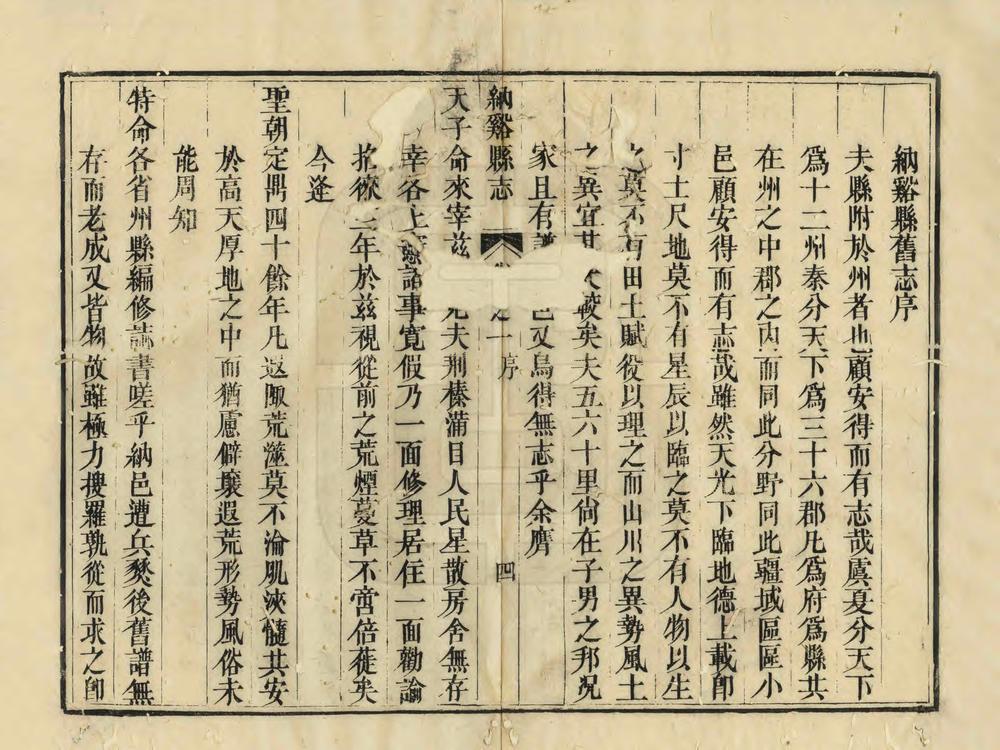 納谿縣舊志序
夫縣附於州者也顧安得而有志哉虞夏分天下
爲十二州秦分天下爲三十六郡凡爲府爲縣共
在州之中郡之內而同此分野同此疆域區區小
邑顧安得而有志哉雖然天光下臨地德上載卽
寸土尺地莫不有星辰以臨之莫不有人物以生
之莫不有田土賦役以理之而山川之異勢風土
之異宜其 較矣夫五六十里尙在子男之邦況
家且有譜 邑又烏得無志乎余膺
納谿縣志 卷之一 序 四
天子命來宰茲 見夫荆榛蒲目人民星散房舍無存
幸各上 諸事寬假乃一面修理居住一面勸諭
招徠 年於茲視從前之荒煙蔓草不啻倍蓰矣
今逢
聖朝定鼎四十餘年凡遐陬荒澨莫不淪肌浹髓共安
於高天厚地之中而猶慮僻壤遐荒形勢風俗未
能周知
特命各省州縣編修誌書嗟乎納邑遭兵燹後舊譜無
存而老成又皆物故雖極力搜羅孰從而求之卽